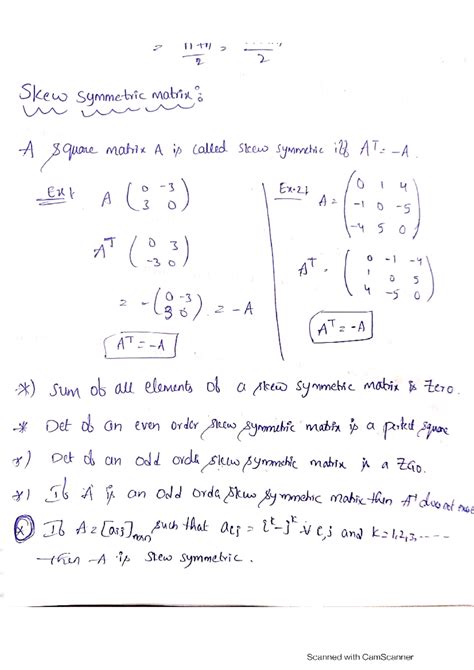 =
2
=
2
Skew symmetric matrix:
A square matrix A is called skew symmetric iff Aᵀ = -A.
Ex1
A ( 0 -3
3 0 )
Aᵀ ( 0 3
-3 0 )
= -( 0 -3
3 0 ) = -A
Aᵀ = -A
Ex-2
A = ( 0 1 4
-1 0 -5
-4 5 0 )
Aᵀ = ( 0 -1 -4
1 0 5
4 -5 0 )
Aᵀ = -A
*) Sum of all elements of a skew symmetric matrix is Zero.
* Det of an even order skew symmetric matrix is a perfect square
*) Det of an odd order skew symmetric matrix is a Zero.
*) If A is an odd order skew symmetric matrix then A⁻¹ does not exist
* If A = [aij]mxn such that aij = i^k - j^k ∀ i, j and k = 1, 2, 3, ----
then A is skew symmetric.
Scanned with CamScanner